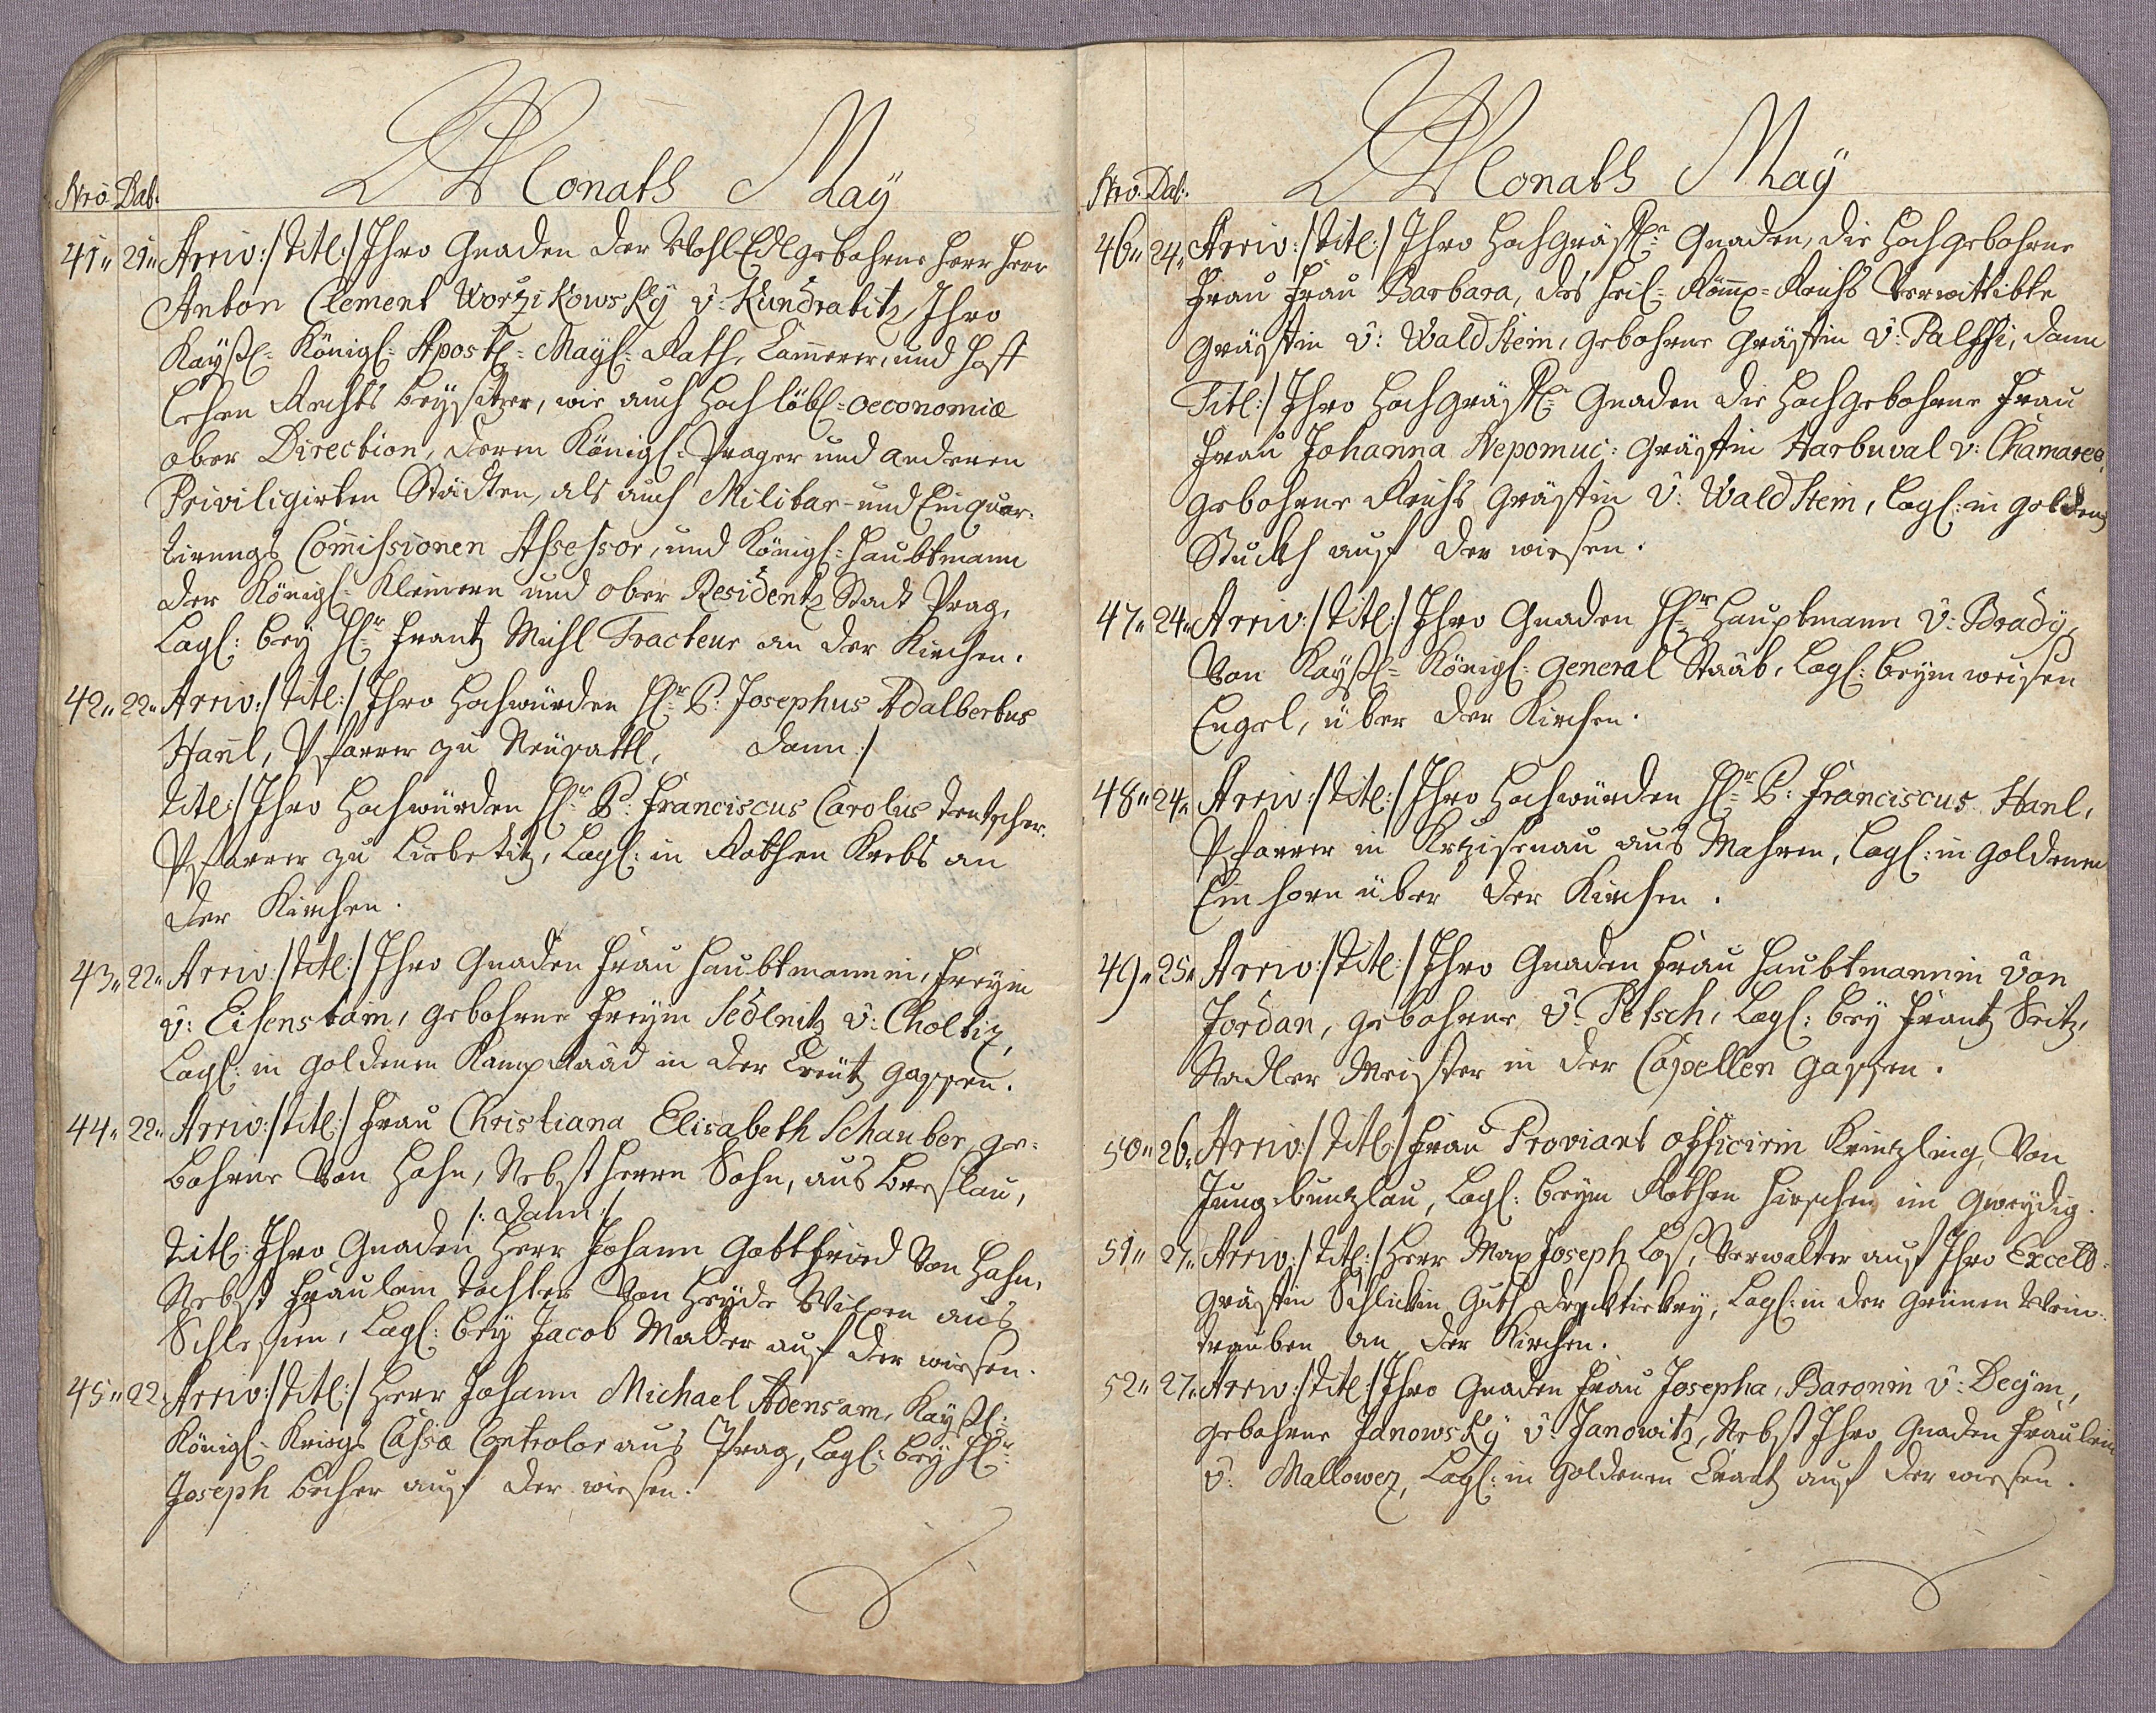 Monath May
Nro. Dat.
41. 21. Arriv:/Titl:/ Ihro Gnaden der WohlEdlgebohrne Herr Herr
Anton Clement Worzikowsky v: Kundratitz, Ihro
Kayßl: Königl: Apostl: Mayl: Rath, Cammerer, und Hoff
Lehen Rechts beysitzer, wie auch Hochlöbl: Oeconomiæ
ober Direction, deren Königl: Prager und anderen
Priviligirten Städten, als auch Militar- und Einquar-
tirungs Commissionen Assessor, und Königl: Haubtmann
der Königl: Kleinern und ober Residentz Stadt Prag,
Logl: bey H: Frantz Mühl Tracteur an der Kirchen.
42. 22. Arriv:/Titl:/ Ihro Hochwürden H: P: Josephus Adalbertus
Hanl, Pfarrer zu Neüsattl, dann:/
Titl:/ Ihro Hochwürden H: P: Franciscus Carolus Dentscher
Pfarrer zu Liebetitz, Logl: in Rothen Krebs an
der Kirchen.
43. 22. Arriv:/Titl:/ Ihro Gnaden Frau Haubtmannin, Freyin
v: Eisenstain, gebohrne Freyin Sedlnitz v: Choltiz,
Logl: in goldenen Kamp Raad in der Creütz gassen.
44. 22. Arriv:/Titl:/ Frau Christiana Elisabeth Schauber, ge-
bohrne von Hahn, Nebst Herrn Sohn, aus Breslau,
/: dann:/
Titl: Ihro Gnaden Herr Johann Gottfried von Hahn,
Nebst Fräulein Tochter von Heyde aus
Schlesien, Logl: bey Jacob Mader auf der wiesen.
45. 22. Arriv:/Titl:/ Herr Johann Michael Adensam, Kayßl:
Königl: Kriegs Cassæ Controlor aus Prag, Logl: bey H:
Joseph Becher auf der wiesen.
Monath May
Nro. Dat.
46. 24. Arriv:/Titl:/ Ihro Hochgräfl: Gnaden, die Hochgebohrne
Frau Frau Barbara, des Heil: Römp: Reichs Verwittibte
Gräffin v: WaldStein, gebohrne Gräffin v: Palffi, dann
Titl:/ Ihro Hochgräfl: Gnaden die Hochgebohrne Frau
Frau Johanna Nepomuc: Gräffin Harbuval v: Chamarea
gebohrne Reichs Gräffin v: WaldStein, Logl: in golden
Stuckh auf der wiesen.
47. 24. Arriv:/Titl:/ Ihro Gnaden H: Hauptmann v: Brady,
Von Kayßl: Königl: General Staab, Logl: beym weisen
Engel, über der Kirchen.
48. 24. Arriv:/Titl:/ Ihro Hochwürden H: P: Franciscus Hanl,
Pfarrer in Krzisenau aus Mahren, Logl: in goldenen
Einhorn über der Kirchen.
49. 25. Arriv:/Titl:/ Ihro Gnaden Frau Haubtmannin von
Jordan, gebohrne v: Petsch, Logl: bey Frantz Seitz,
Nadler Meister in der Capellen gassen.
50. 26. Arriv:/Titl:/ Frau Proviant officirin Krintzling, Von
Jungbunzlau, Logl: beym Rothen Hirschen im
51. 27. Arriv:/Titl:/ Herr Max Joseph Los, Verwalter auf Ihro Excell:
Gräffin Schlickin Guth Logl: in der Grünen Wein-
trauben an der Kirchen.
52. 27. Arriv:/Titl:/ Ihro Gnaden Frau Josepha, Baronin v: Deym,
gebohrne Janowsky v: Janowitz, Nebst Ihro Gnaden Fräulein
v: Mallowez, Logl: in goldenen Crantz auf der wiesen.